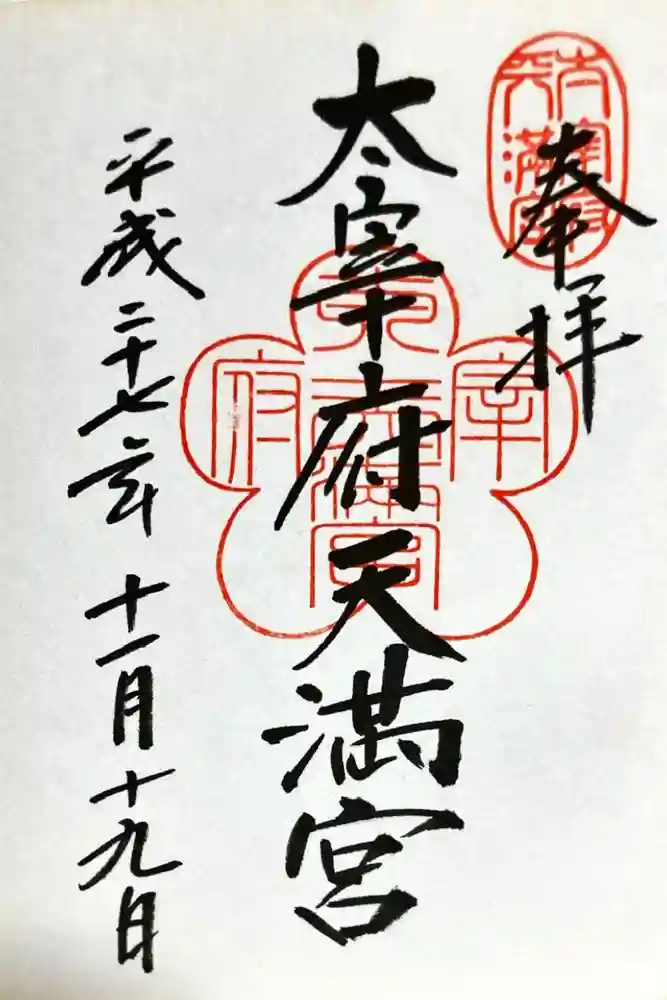 奉拝
太宰府天満宮
平成二十七年十一月十九日
太宰府
天満宮